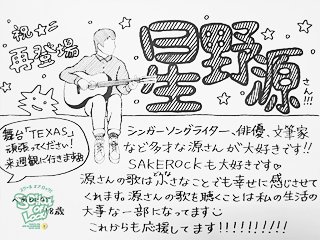 祝☆
再登場
星野源
さん!!!
舞台「TEXAS」
頑張ってください!
来週観に行きます
シンガーソングライター、俳優、文筆家
など多才な源さんが大好きです!!
SAKEROCKも大好きです♡
源さんの歌は小さなことでも幸せに感じさせて
くれます。源さんの歌を聴くことは私の生活の
大事な一部になってます
これからも応援してます!!!!!!!!!!
8歳